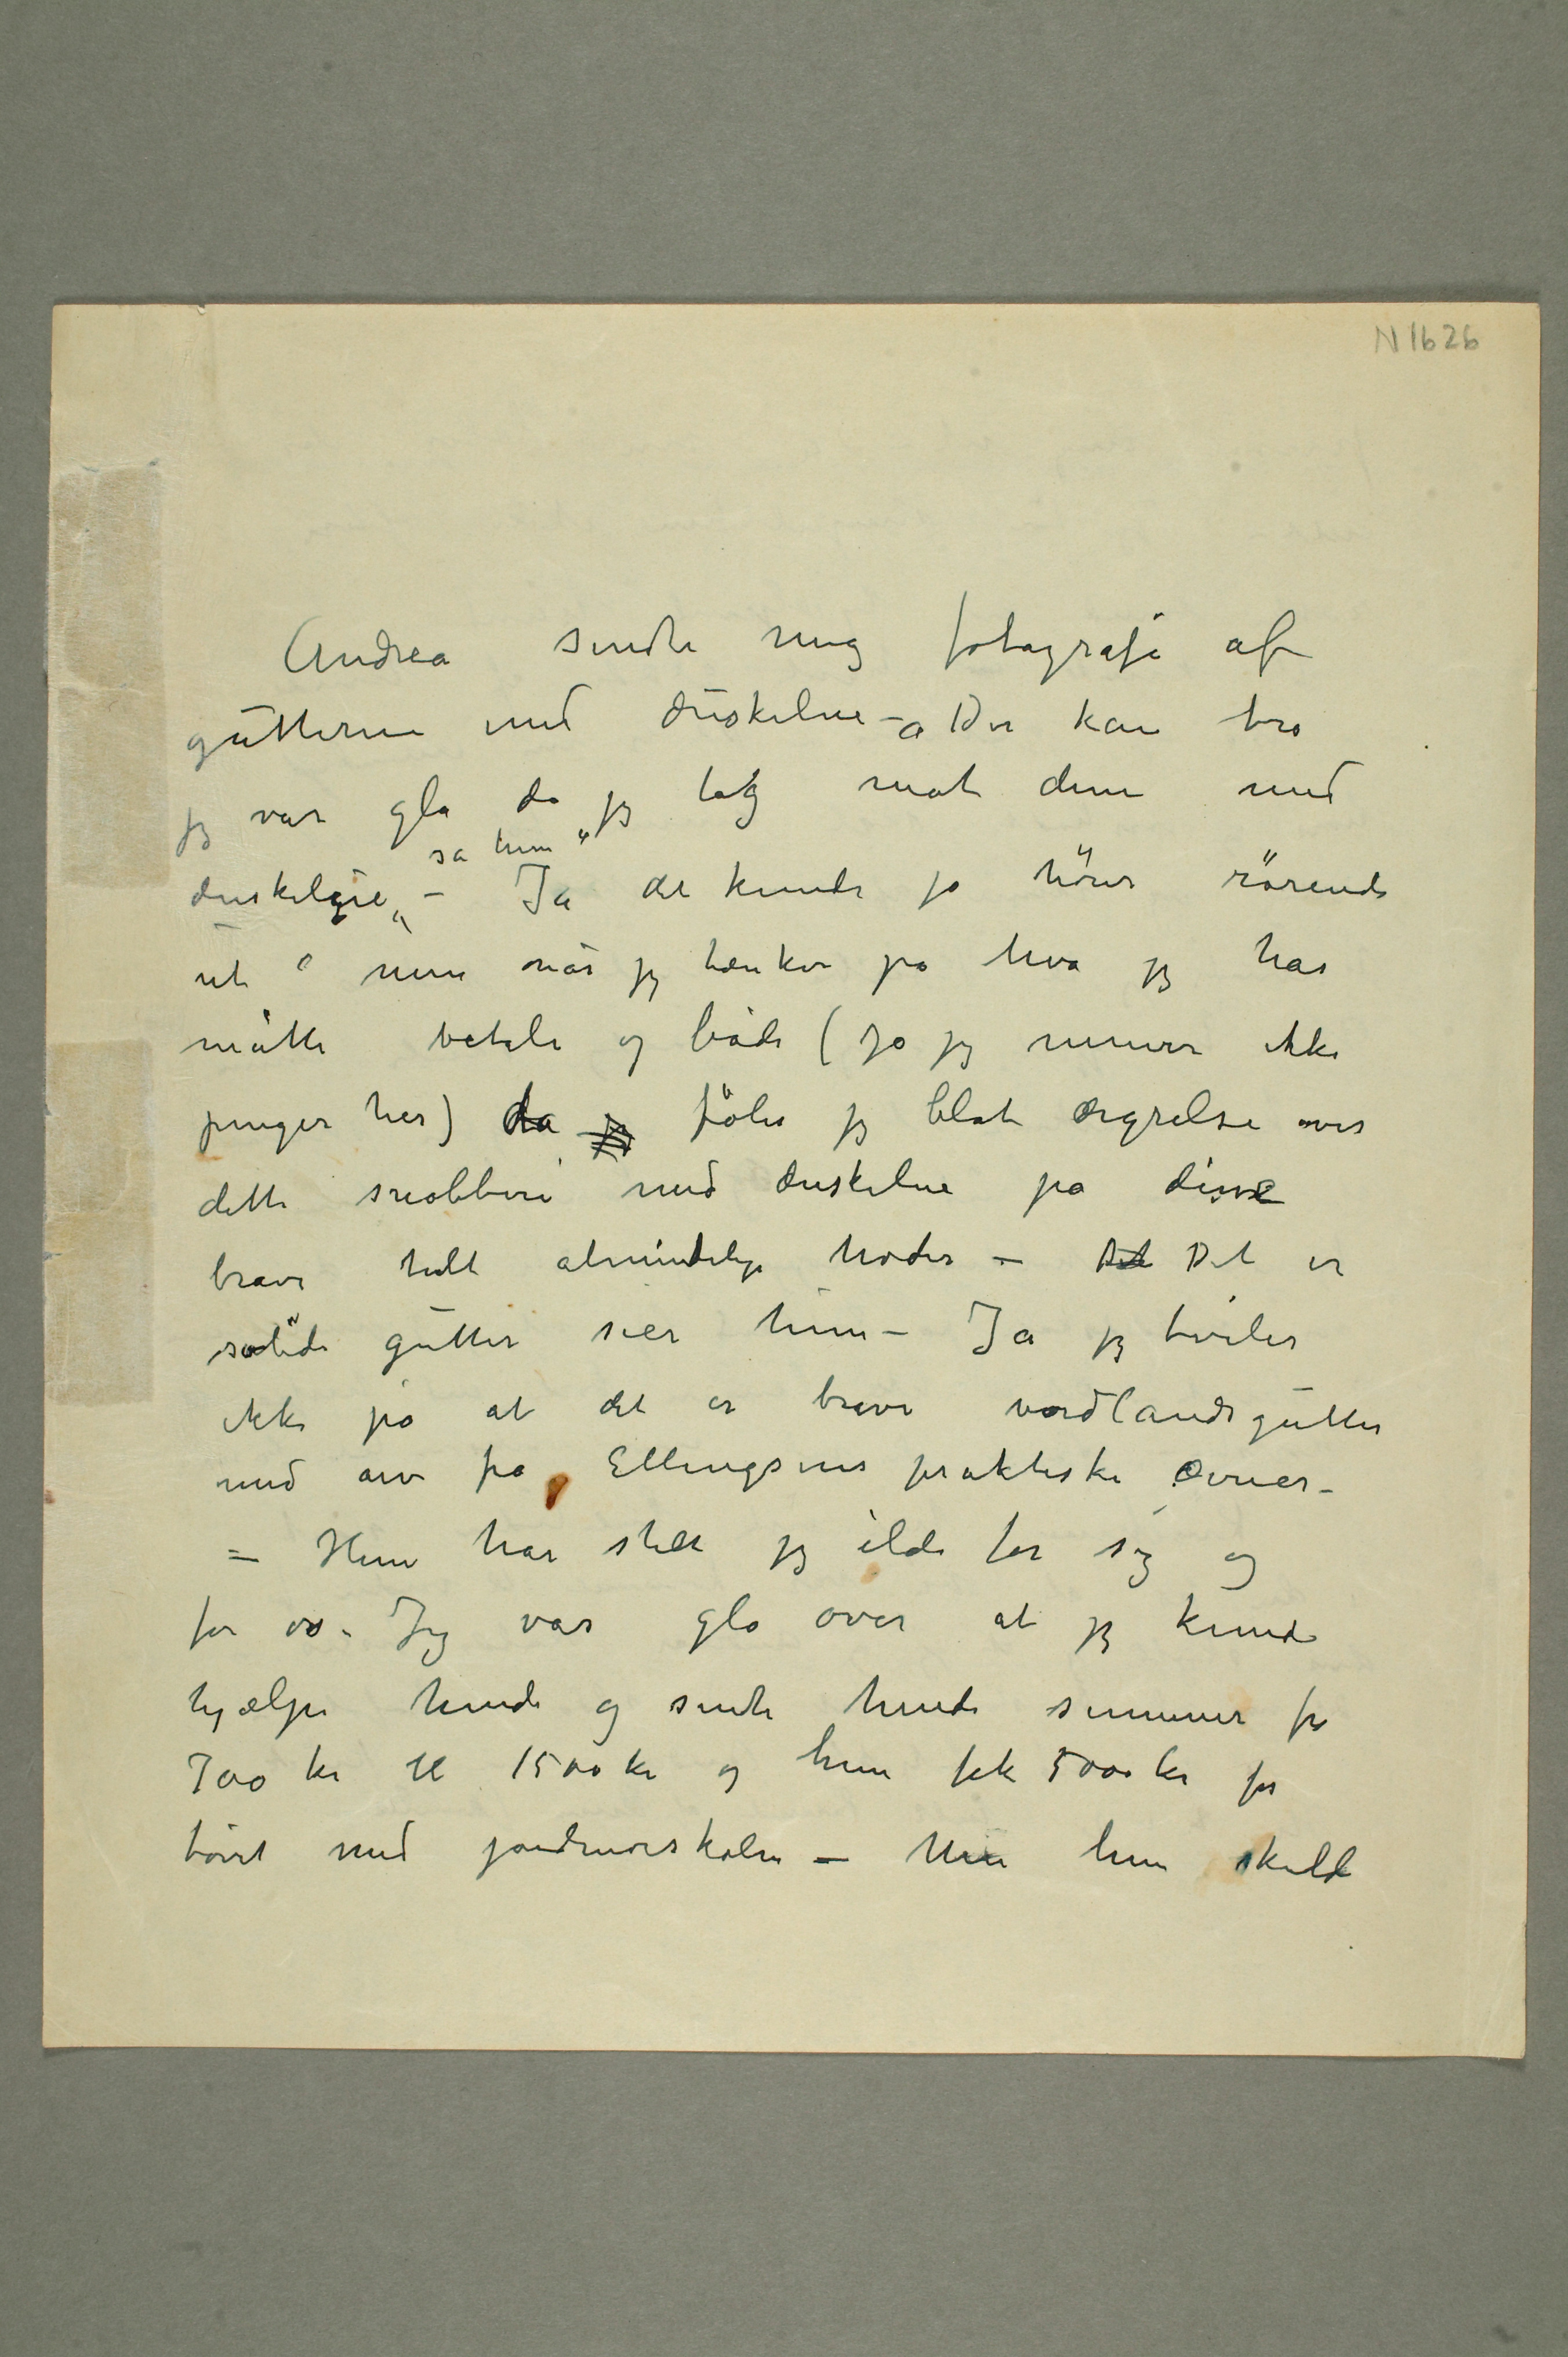 N 1626
Andrea sendte mig fotografi af
gutterne med duskelue – Der kan tro
jeg var gla da jeg tog mot dem med
så hun "
duskelue" – Ja det kunde jo höres rörende
ut men når jeg tænker på hva jeg har
måtte betale og både (jo jeg mener ikke
penger her) da jeg föler jeg blot ærgrelse over
dette snobberi med duskelue på disse
brave helt almindelige hoder – Det Det er
solide gutter sier hun – Ja jeg tviler
ikke på at det er brave nordlandsgutter
med arv fra Ellingsens praktiske evner –
– Hun har stelt jeg ilde for sig og
for os. Jeg var gla over at jeg kunde
hjælpe hende og sendte hende summer fra
700 kr til 1500 kr og hun fik 5000 kr for
tövet med jordmorskolen – Men hun skuld